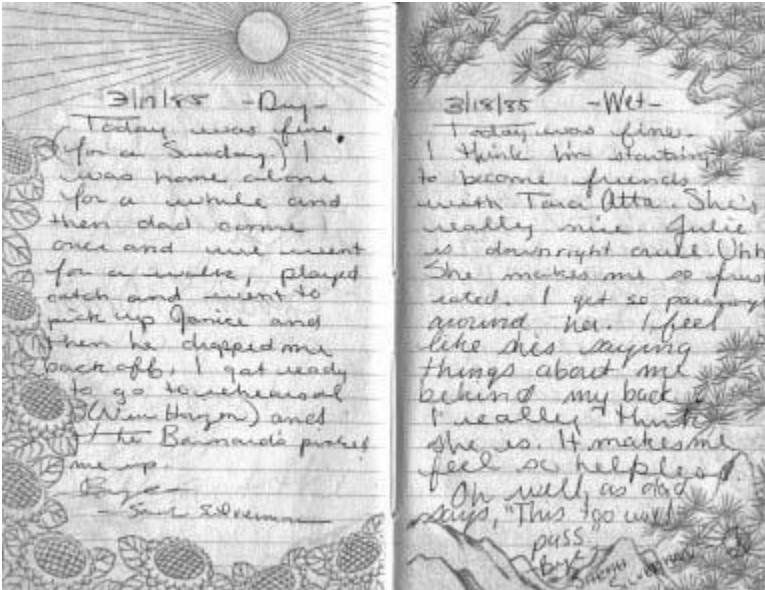 3/17/85 -Dry-
Today was fine
(for a Sunday.) I
was home alone
for a while and
then dad came
once and we went
for a walk, played
catch and went to
pick up Janice and
then he dropped me
back off. I got ready
to go to rehearsal
and
the Barnards picked
me up.
Bye
- Silverman
3/18/85 -Wet-
Today was fine.
I think I'm starting
to become friends
with Tara Atta. She's
really nice. Julie
is downright cruel. Uhh
She makes me so frus
rated. I get so
around her. I feel
like she's saying
things about me
behind my back
I really think
she is. It makes me
feel so helpless.
Oh well, as dad
says, "This to will
pass"
-Bye
Silverman